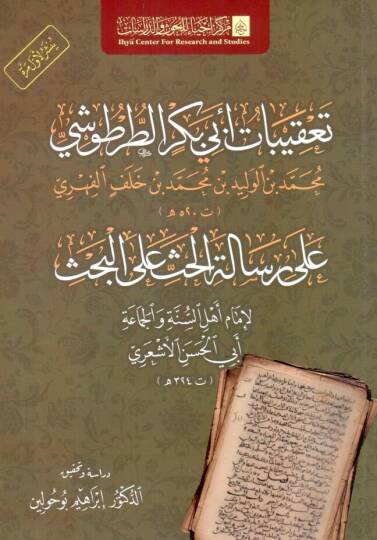 مركز إحياء للبحوث والدراسات
Ihya Center For Research and Studies
ينشر لأول مرة
تعقيبات أبي بكر الطرطوشي
محمد بن الوليد بن محمد بن خلف الفهري
(ت ٥٢٠ هـ)
على رسالة الحث على البحث
لإمام أهل السنة والجماعة
أبي الحسن الأشعري
(ت ٣٢٤ هـ)
دراسة وتحقيق
الدكتور إبراهيم بوحولين